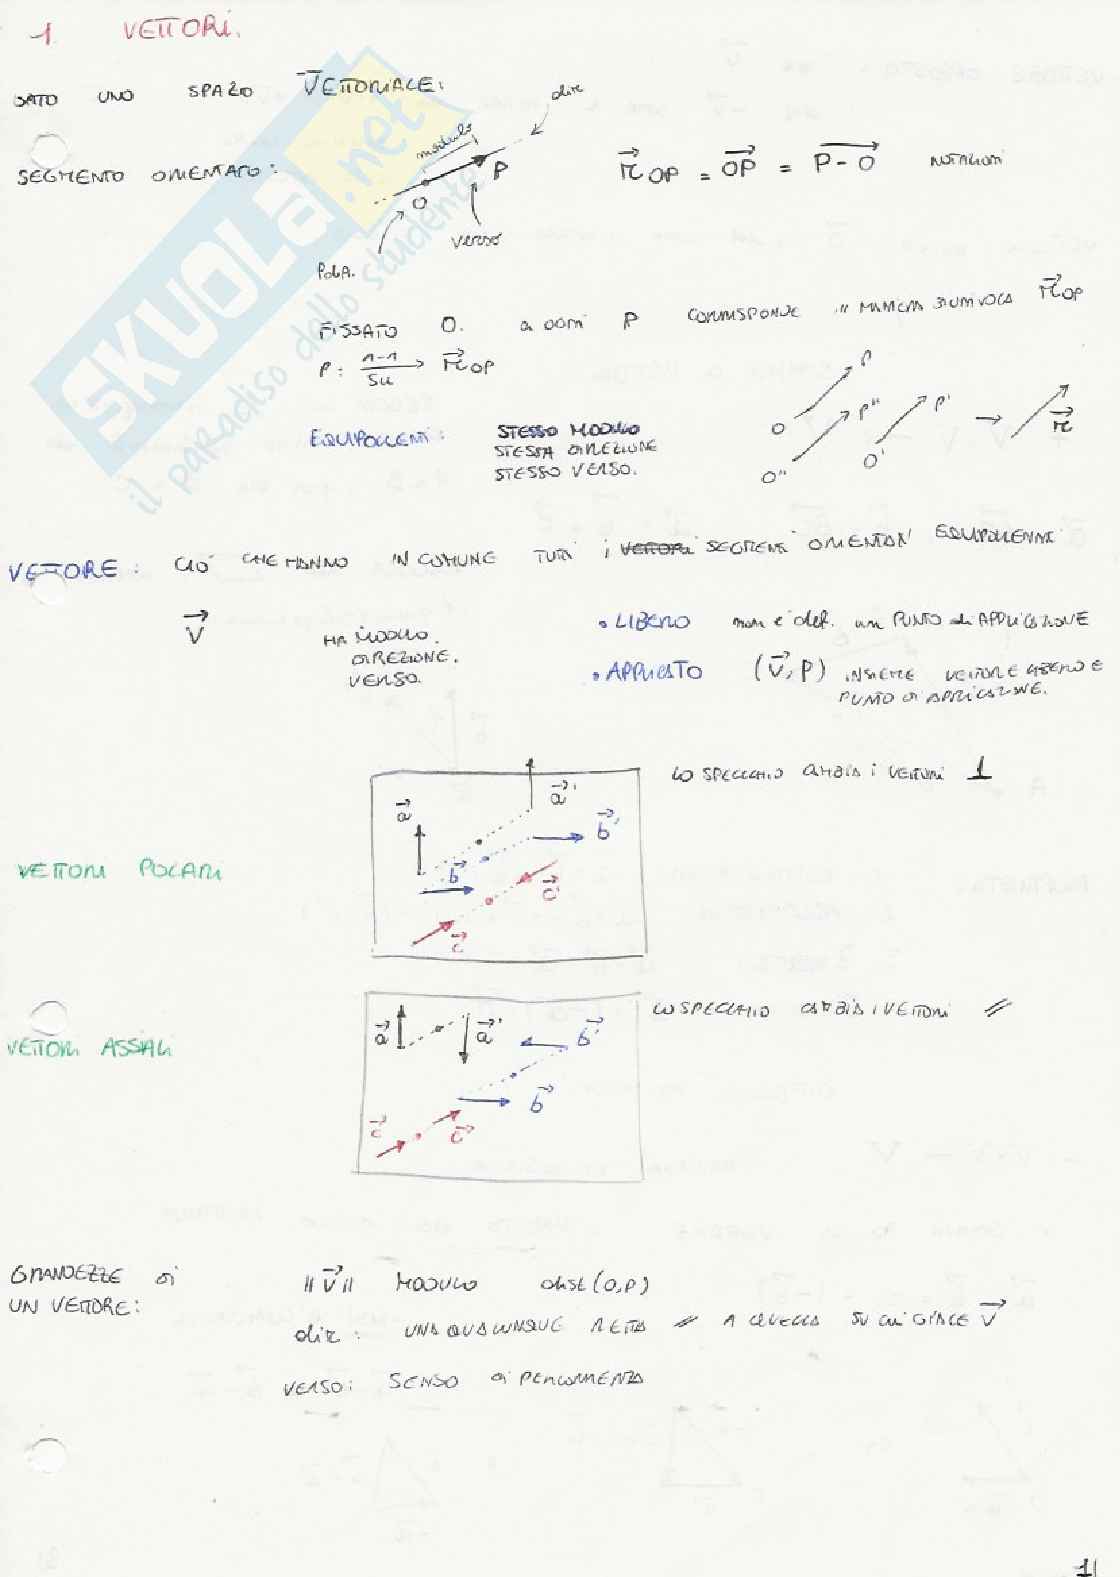 1 VETTORI.
DATO UNO SPAZIO VETTORIALE:
SEGMENTO ORIENTATO:
modulo
dir
O
P
verso
POLA.
r⃗OP = OP⃗ = P-O⃗ NOTAZIONI
FISSATO O. a ogni P CORRISPONDE in MANIERA BIUNIVOCA r⃗OP
P: 1-1 su → r⃗OP
EQUIPOLLENTI: STESSO MODULO
STESSA DIREZIONE
STESSO VERSO.
O P
O'' P''
O' P' → r⃗
VETTORE: CIÒ CHE HANNO IN COMUNE TUTTI i VETTORI SEGMENTI ORIENTATI EQUIPOLLENTI
V⃗ HA MODULO.
DIREZIONE.
VERSO.
• LIBERO non è def. un PUNTO di APPLICAZIONE
• APPLICATO (V⃗, P) INSIEME VETTORE LIBERO E
PUNTO DI APPLICAZIONE.
LO SPECCHIO CAMBIA i VETTORI ⊥
VETTORI POLARI
a⃗ a⃗'
b⃗ b⃗'
c⃗ c⃗
LO SPECCHIO CAMBIA i VETTORI //
VETTORI ASSIALI
a⃗ a⃗' b⃗'
b⃗
c⃗ c⃗'
GRANDEZZE DI
UN VETTORE:
||V⃗|| MODULO dist(O,P)
dir: UNA QUALUNQUE RETTA // A QUELLA SU CUI GIACE V⃗
VERSO: SENSO DI PERCORRENZA
1
SKUOLA.net
il paradiso dello studente